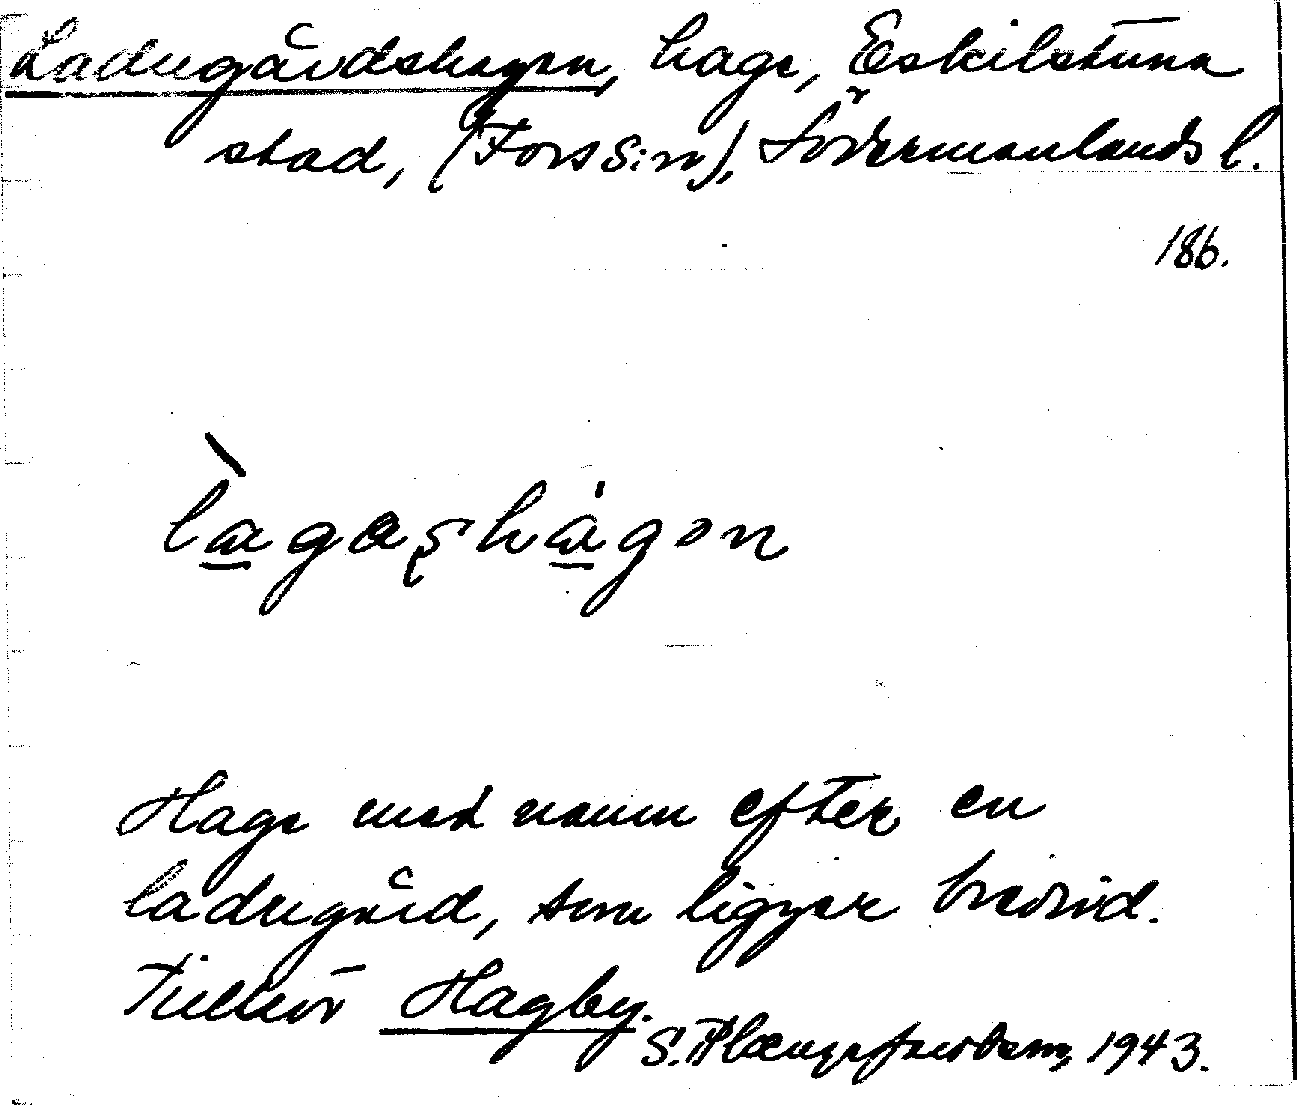 Ladugårdshagen, hage, Eskilstuna
stad, (Fors s:n), Södermanlands l.
186.
làgaʂhȧgən
Hage med namn efter en
ladugård, som ligger bredvid.
Tillhör Hagby.
S. 1943.